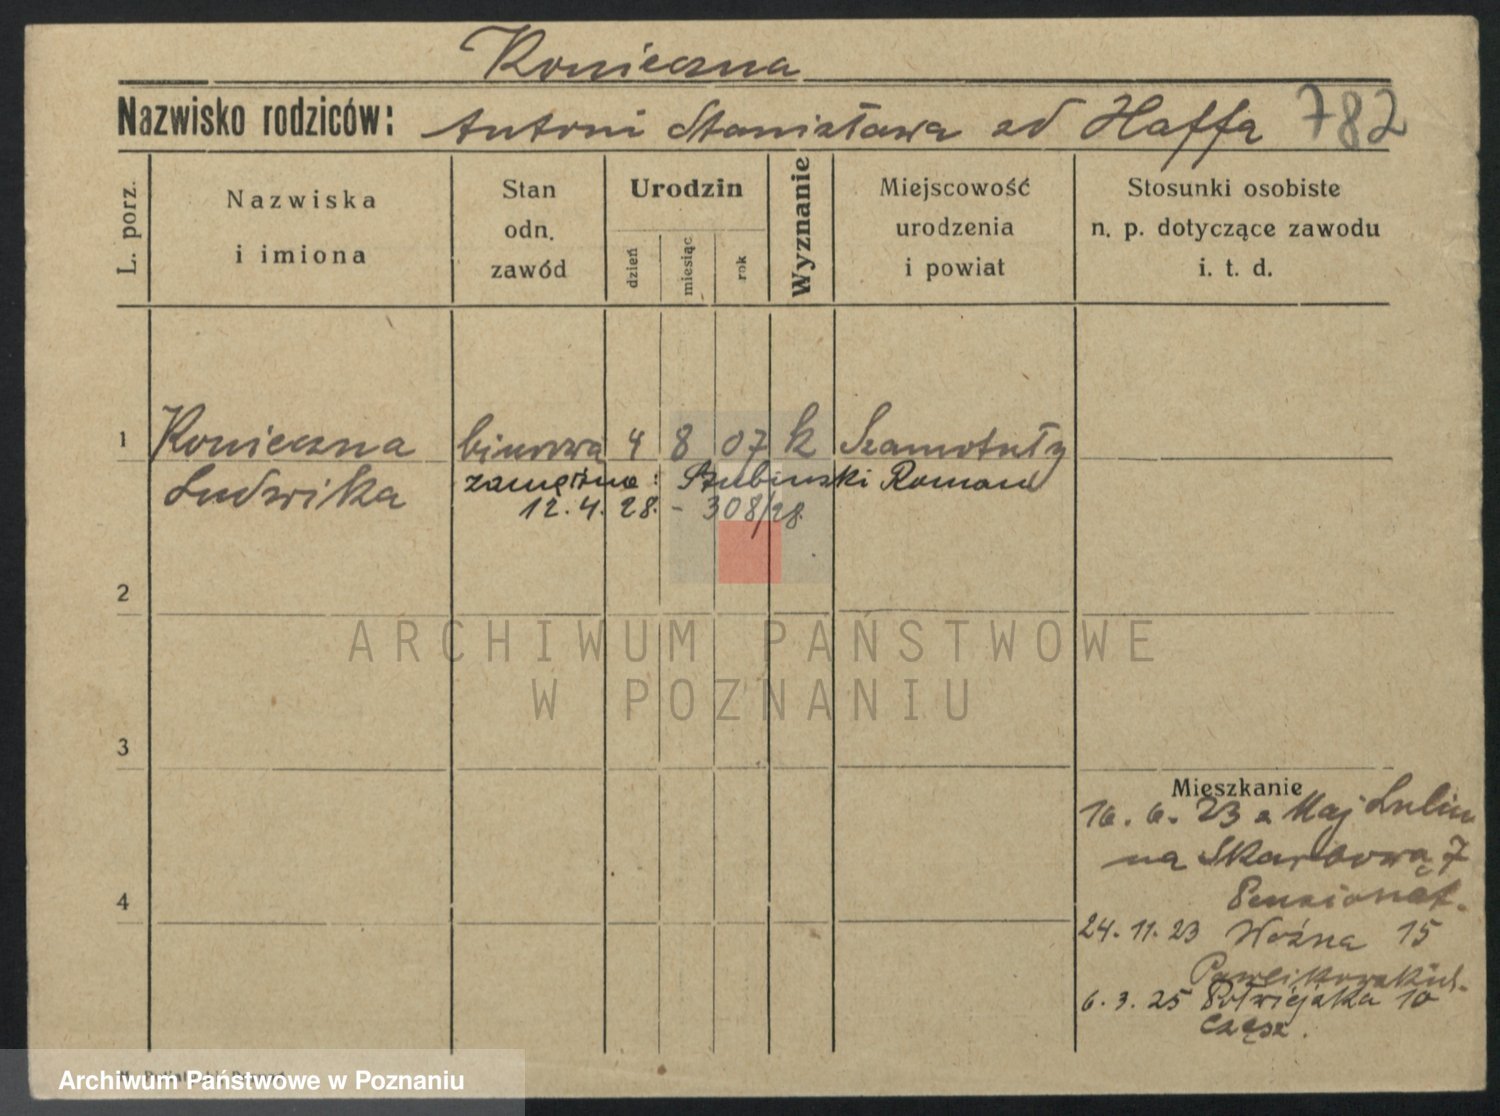 Konieczna
Nazwisko rodziców: Antoni Stanisława od Haffa 782
L. porz.
Nazwiska
i imiona
Stan
odn.
zawód
Urodzin
dzień
miesiąc
rok
Wyznanie
Miejscowość
urodzenia
i powiat
Stosunki osobiste
n. p. dotyczące zawodu
i. t. d.
1 Konieczna biurowa 4 8 07 k Szamotuły
Ludwika zamężna: Szubinski Roman
12.4.28. - 308/28.
2
ARCHIWUM PAŃSTWOWE
W POZNANIU
3
Mieszkanie
16. 6. 23 z Maj
na Skarbowa 7
Pensionat.
4
24. 11. 23 Woźna 15
6. 3. 25 Półwiejska 10
Archiwum Państwowe w Poznaniu